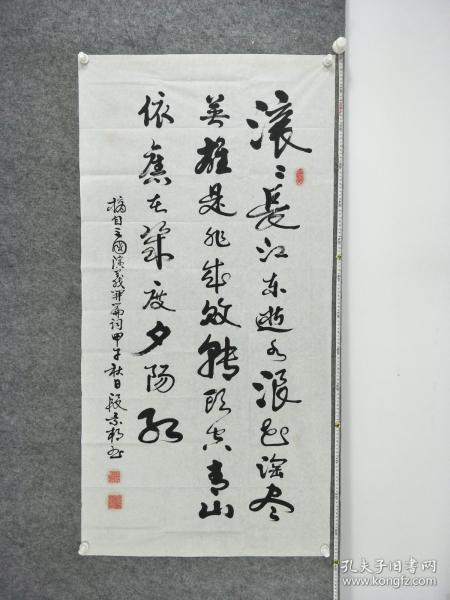 滚〻長江东逝水浪花淘尽
英雄是非成敗轉头空青山
依舊在幾度夕陽红
摘自三國演義開篇词甲午秋日段
孔夫子旧书网
www.kongfz.com